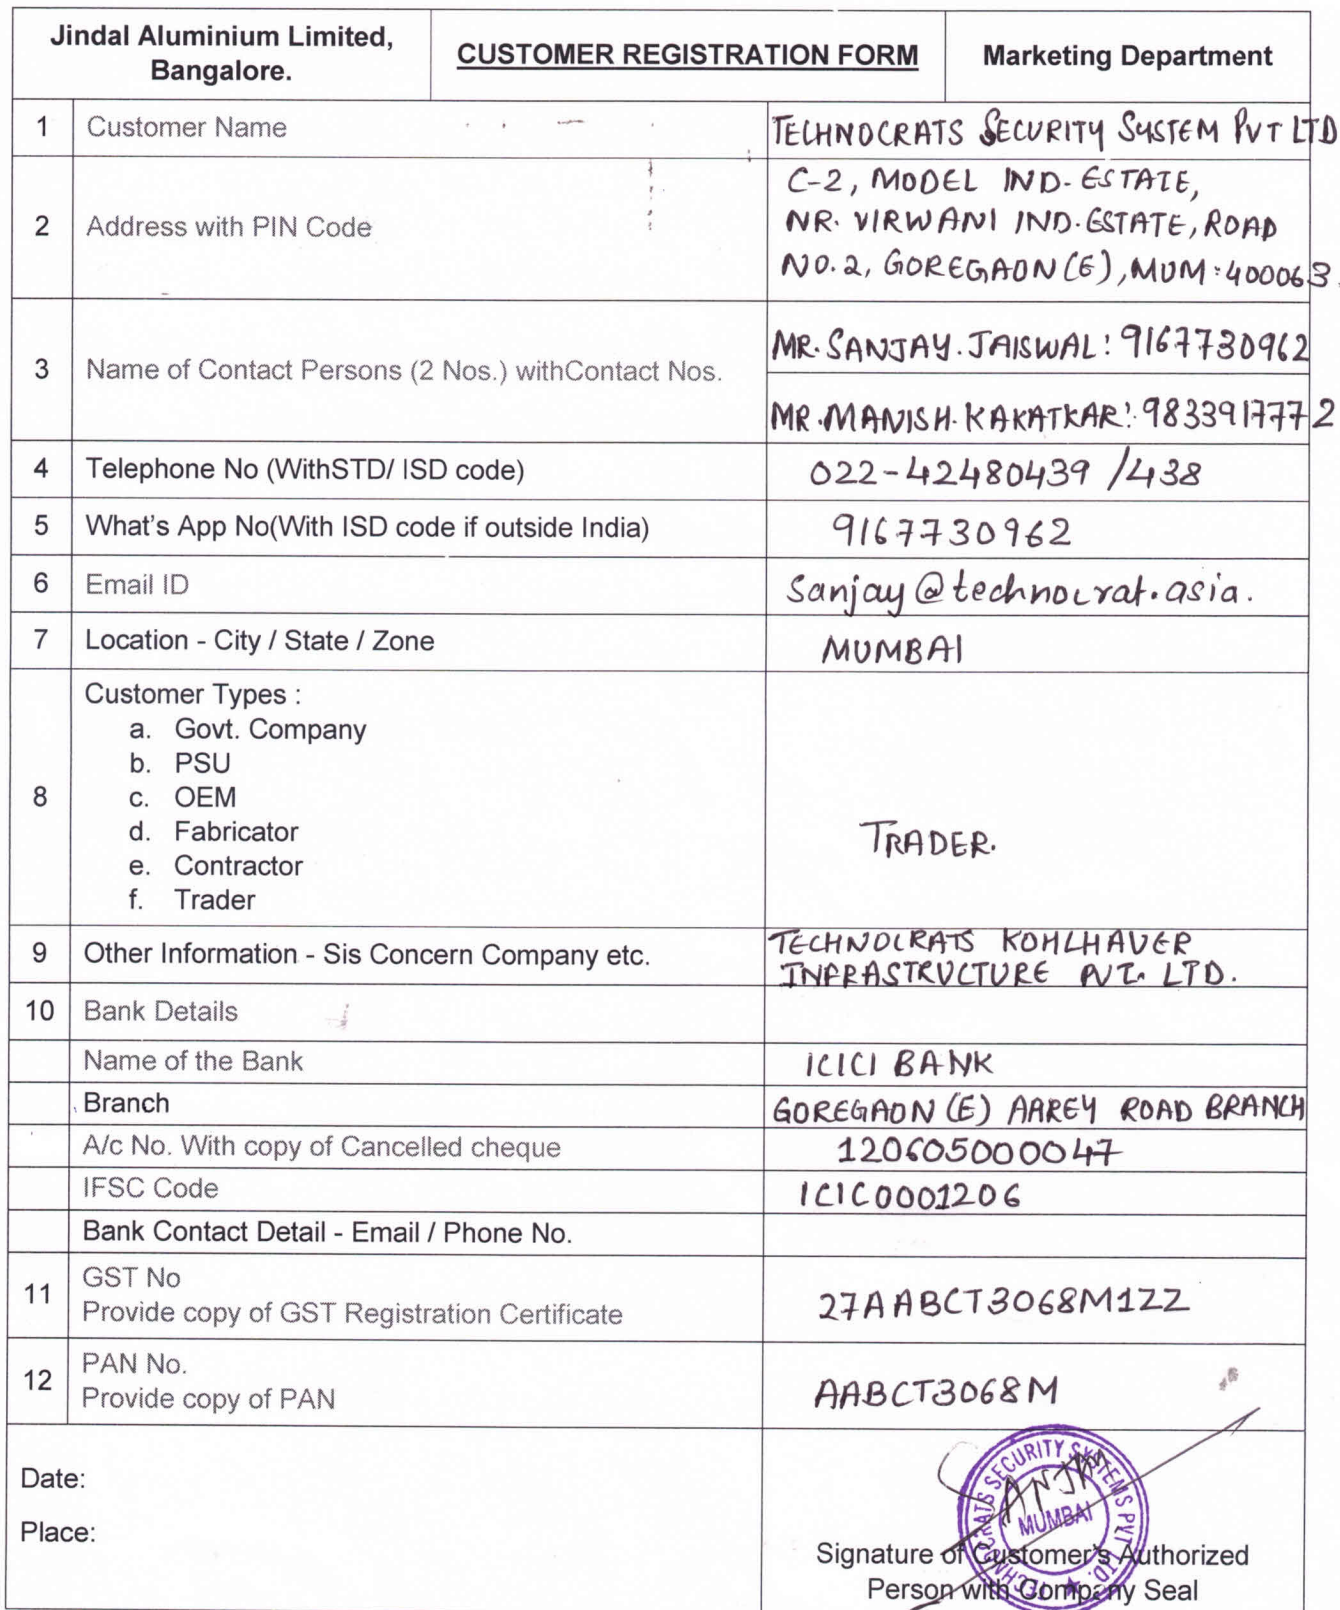 Jindal Aluminium Limited,
Bangalore.
CUSTOMER REGISTRATION FORM
Marketing Department
1 Customer Name TECHNOCRATS SECURITY SYSTEM PVT LTD
2 Address with PIN Code
C-2, MODEL IND. ESTATE,
NR. VIRWANI IND. ESTATE, ROAD
NO.2, GOREGAON (E), MUM:400063.
3 Name of Contact Persons (2 Nos.) withContact Nos.
MR. SANJAY. JAISWAL: 9167730962
MR. MANISH. KAKATKAR: 9833917772
4 Telephone No (WithSTD/ ISD code) 022-42480439 /438
5 What's App No(With ISD code if outside India) 9167730962
6 Email ID Sanjay@technocrat.asia.
7 Location - City / State / Zone MUMBAI
8 Customer Types :
a. Govt. Company
b. PSU
c. OEM
d. Fabricator
e. Contractor
f. Trader
TRADER.
9 Other Information - Sis Concern Company etc.
TECHNOCRATS KOHLHAUER
INFRASTRUCTURE PVT. LTD.
10 Bank Details
Name of the Bank ICICI BANK
Branch GOREGAON (E) AAREY ROAD BRANCH
A/c No. With copy of Cancelled cheque 120605000047
IFSC Code ICIC0001206
Bank Contact Detail - Email / Phone No.
11 GST No
Provide copy of GST Registration Certificate 27AABCT3068M1ZZ
12 PAN No.
Provide copy of PAN AABCT3068M
Date:
Place:
TECHNOCRATS SECURITY SYSTEMS PVT. LTD.
MUMBAI
Signature of Customer's Authorized
Person with Company Seal